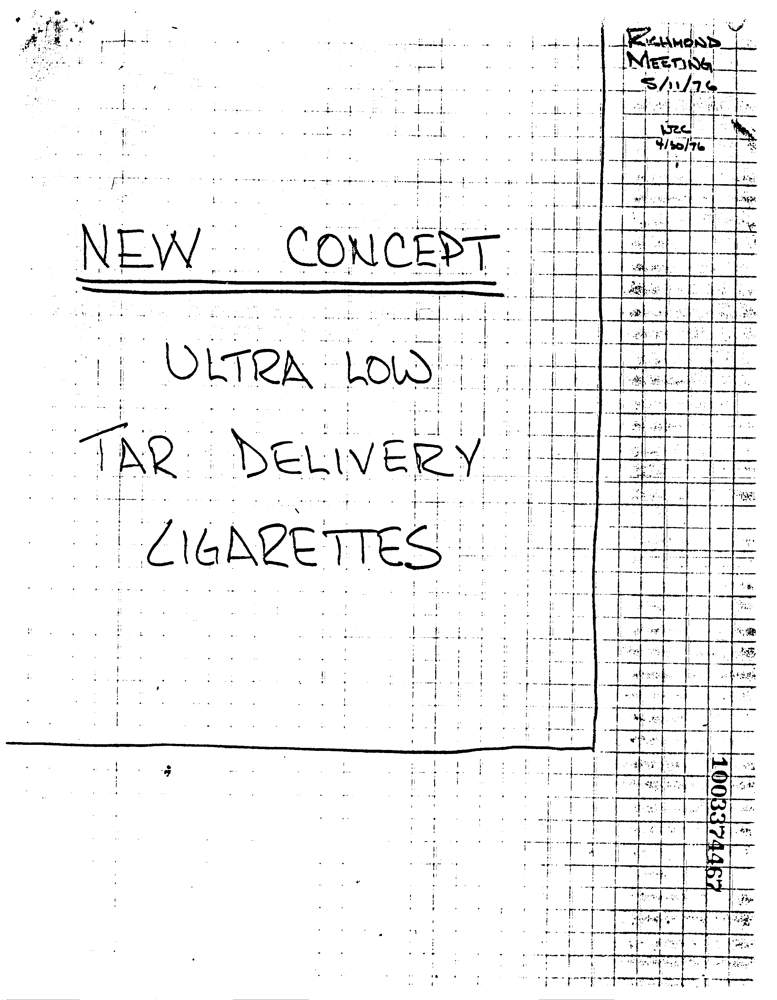 RICHMOND
MEETING
5/11/76
WZC
4/30/76
NEW CONCEPT
ULTRA LOW
TAR DELIVERY
CIGARETTES
1003374467